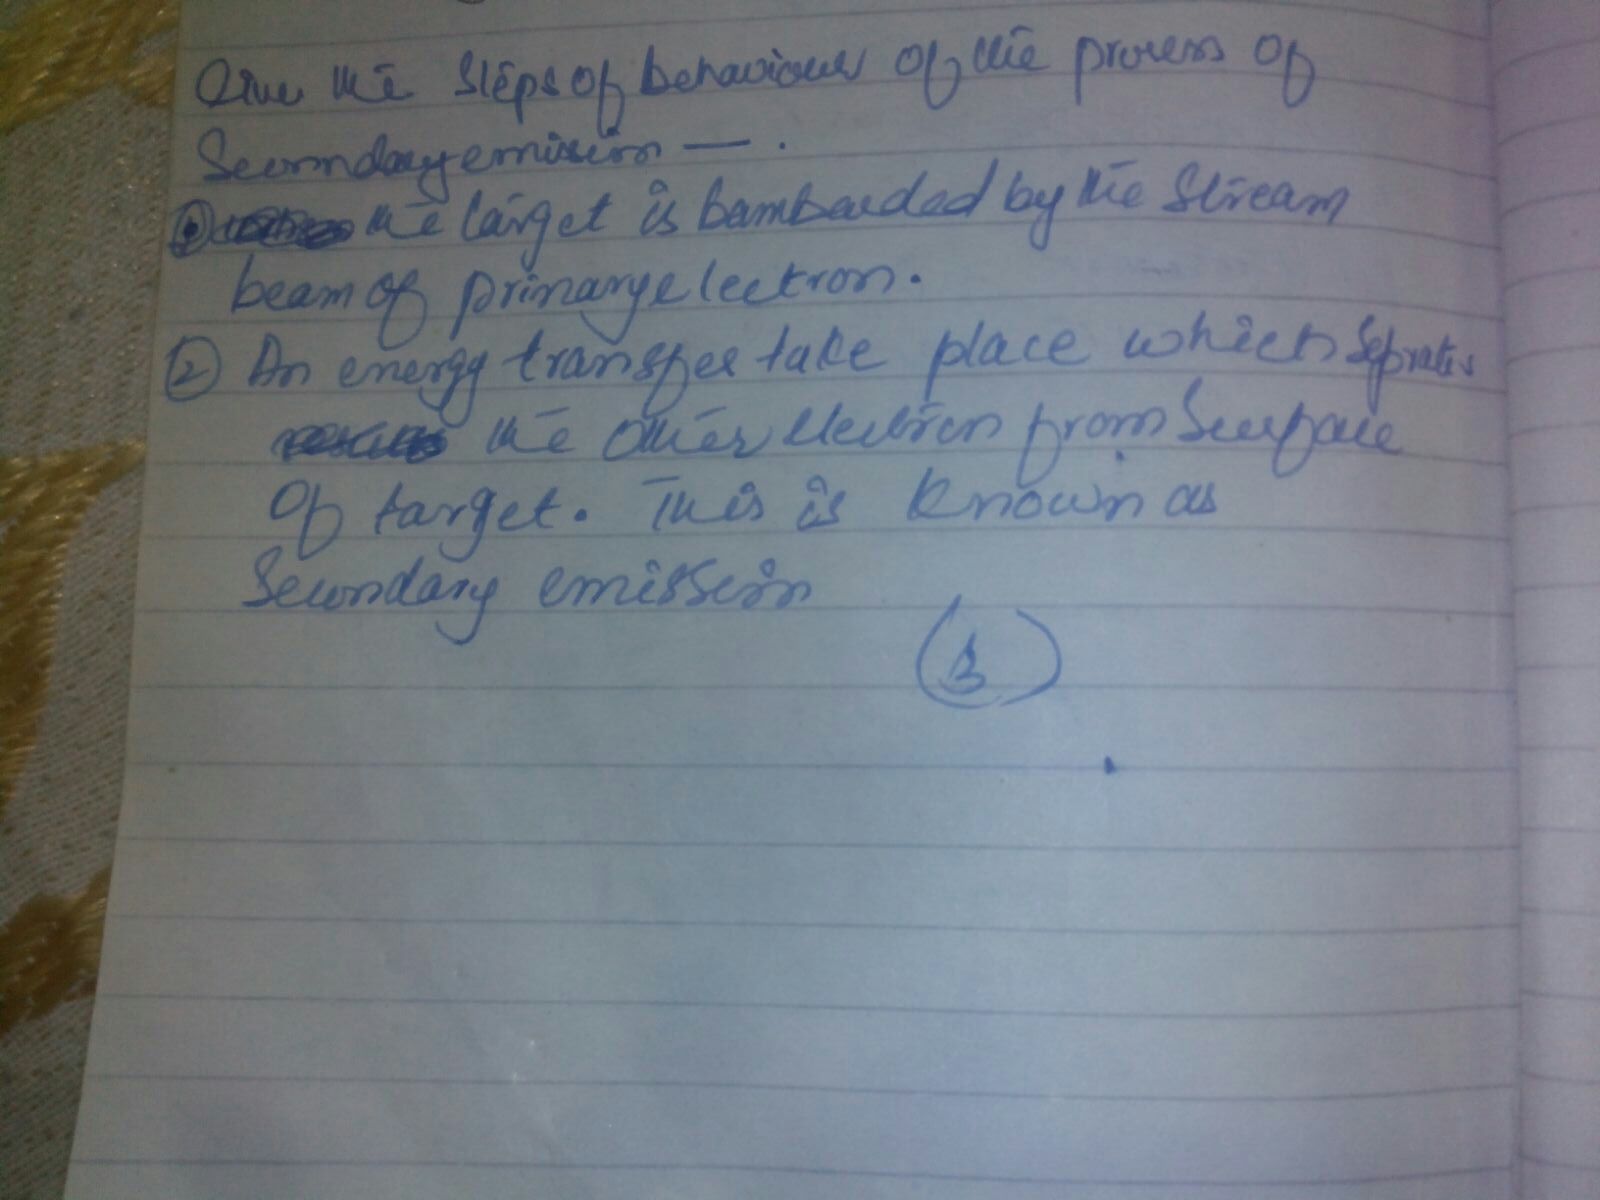 Give the steps of behaviour of the process of
Secondary emission — .
① the target is bambarded by the Stream
beam of primary electron.
② An energy transfer take place which Seprates
the other electron from Surface
of target. This is known as
Secondary emission